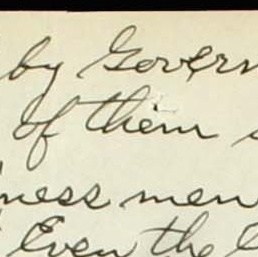 by Govern
of them s
ness men
Even the